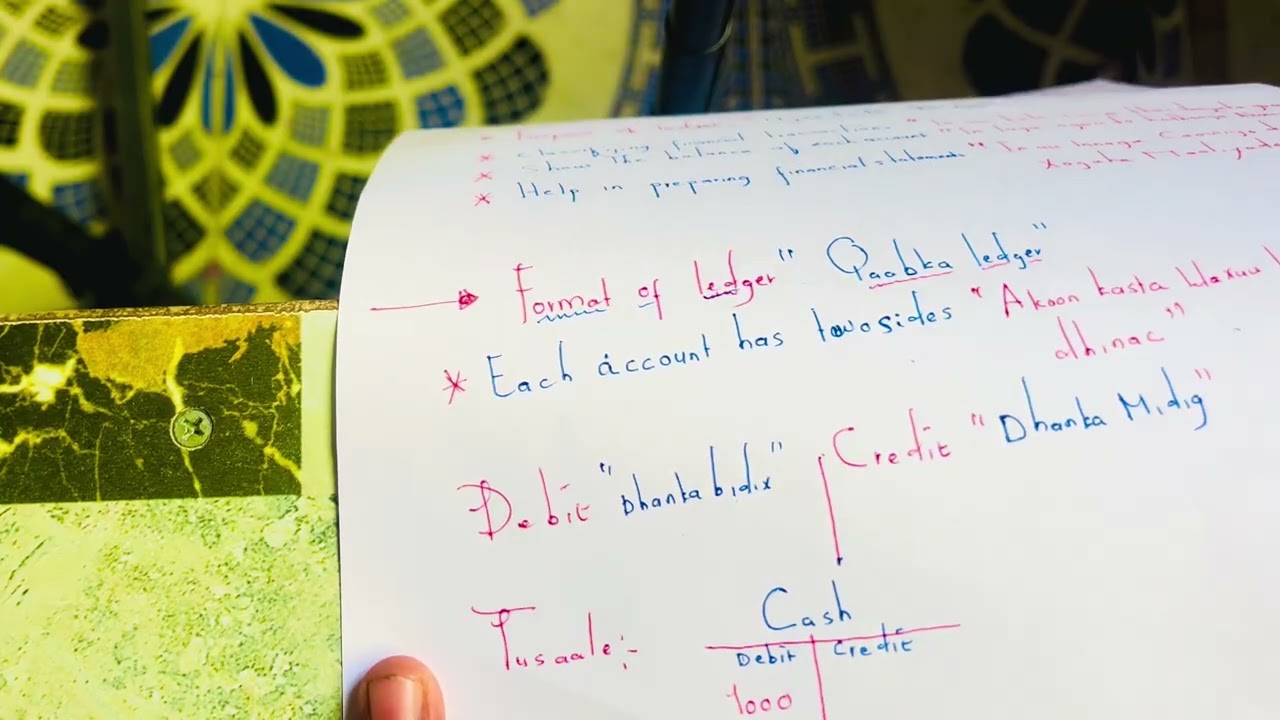 Purpose of ledger
* Classifying financial transactions "
* Show the balance of each account "
* Help in preparing financial statements "
Format of ledger " Qaabka ledger "
* Each account has two sides " Akoon kasta Waxuu
dhinac "
Debit " Dhanka bidix " Credit " Dhanka Midig "
Tusaale:-
Cash
Debit Credit
1000